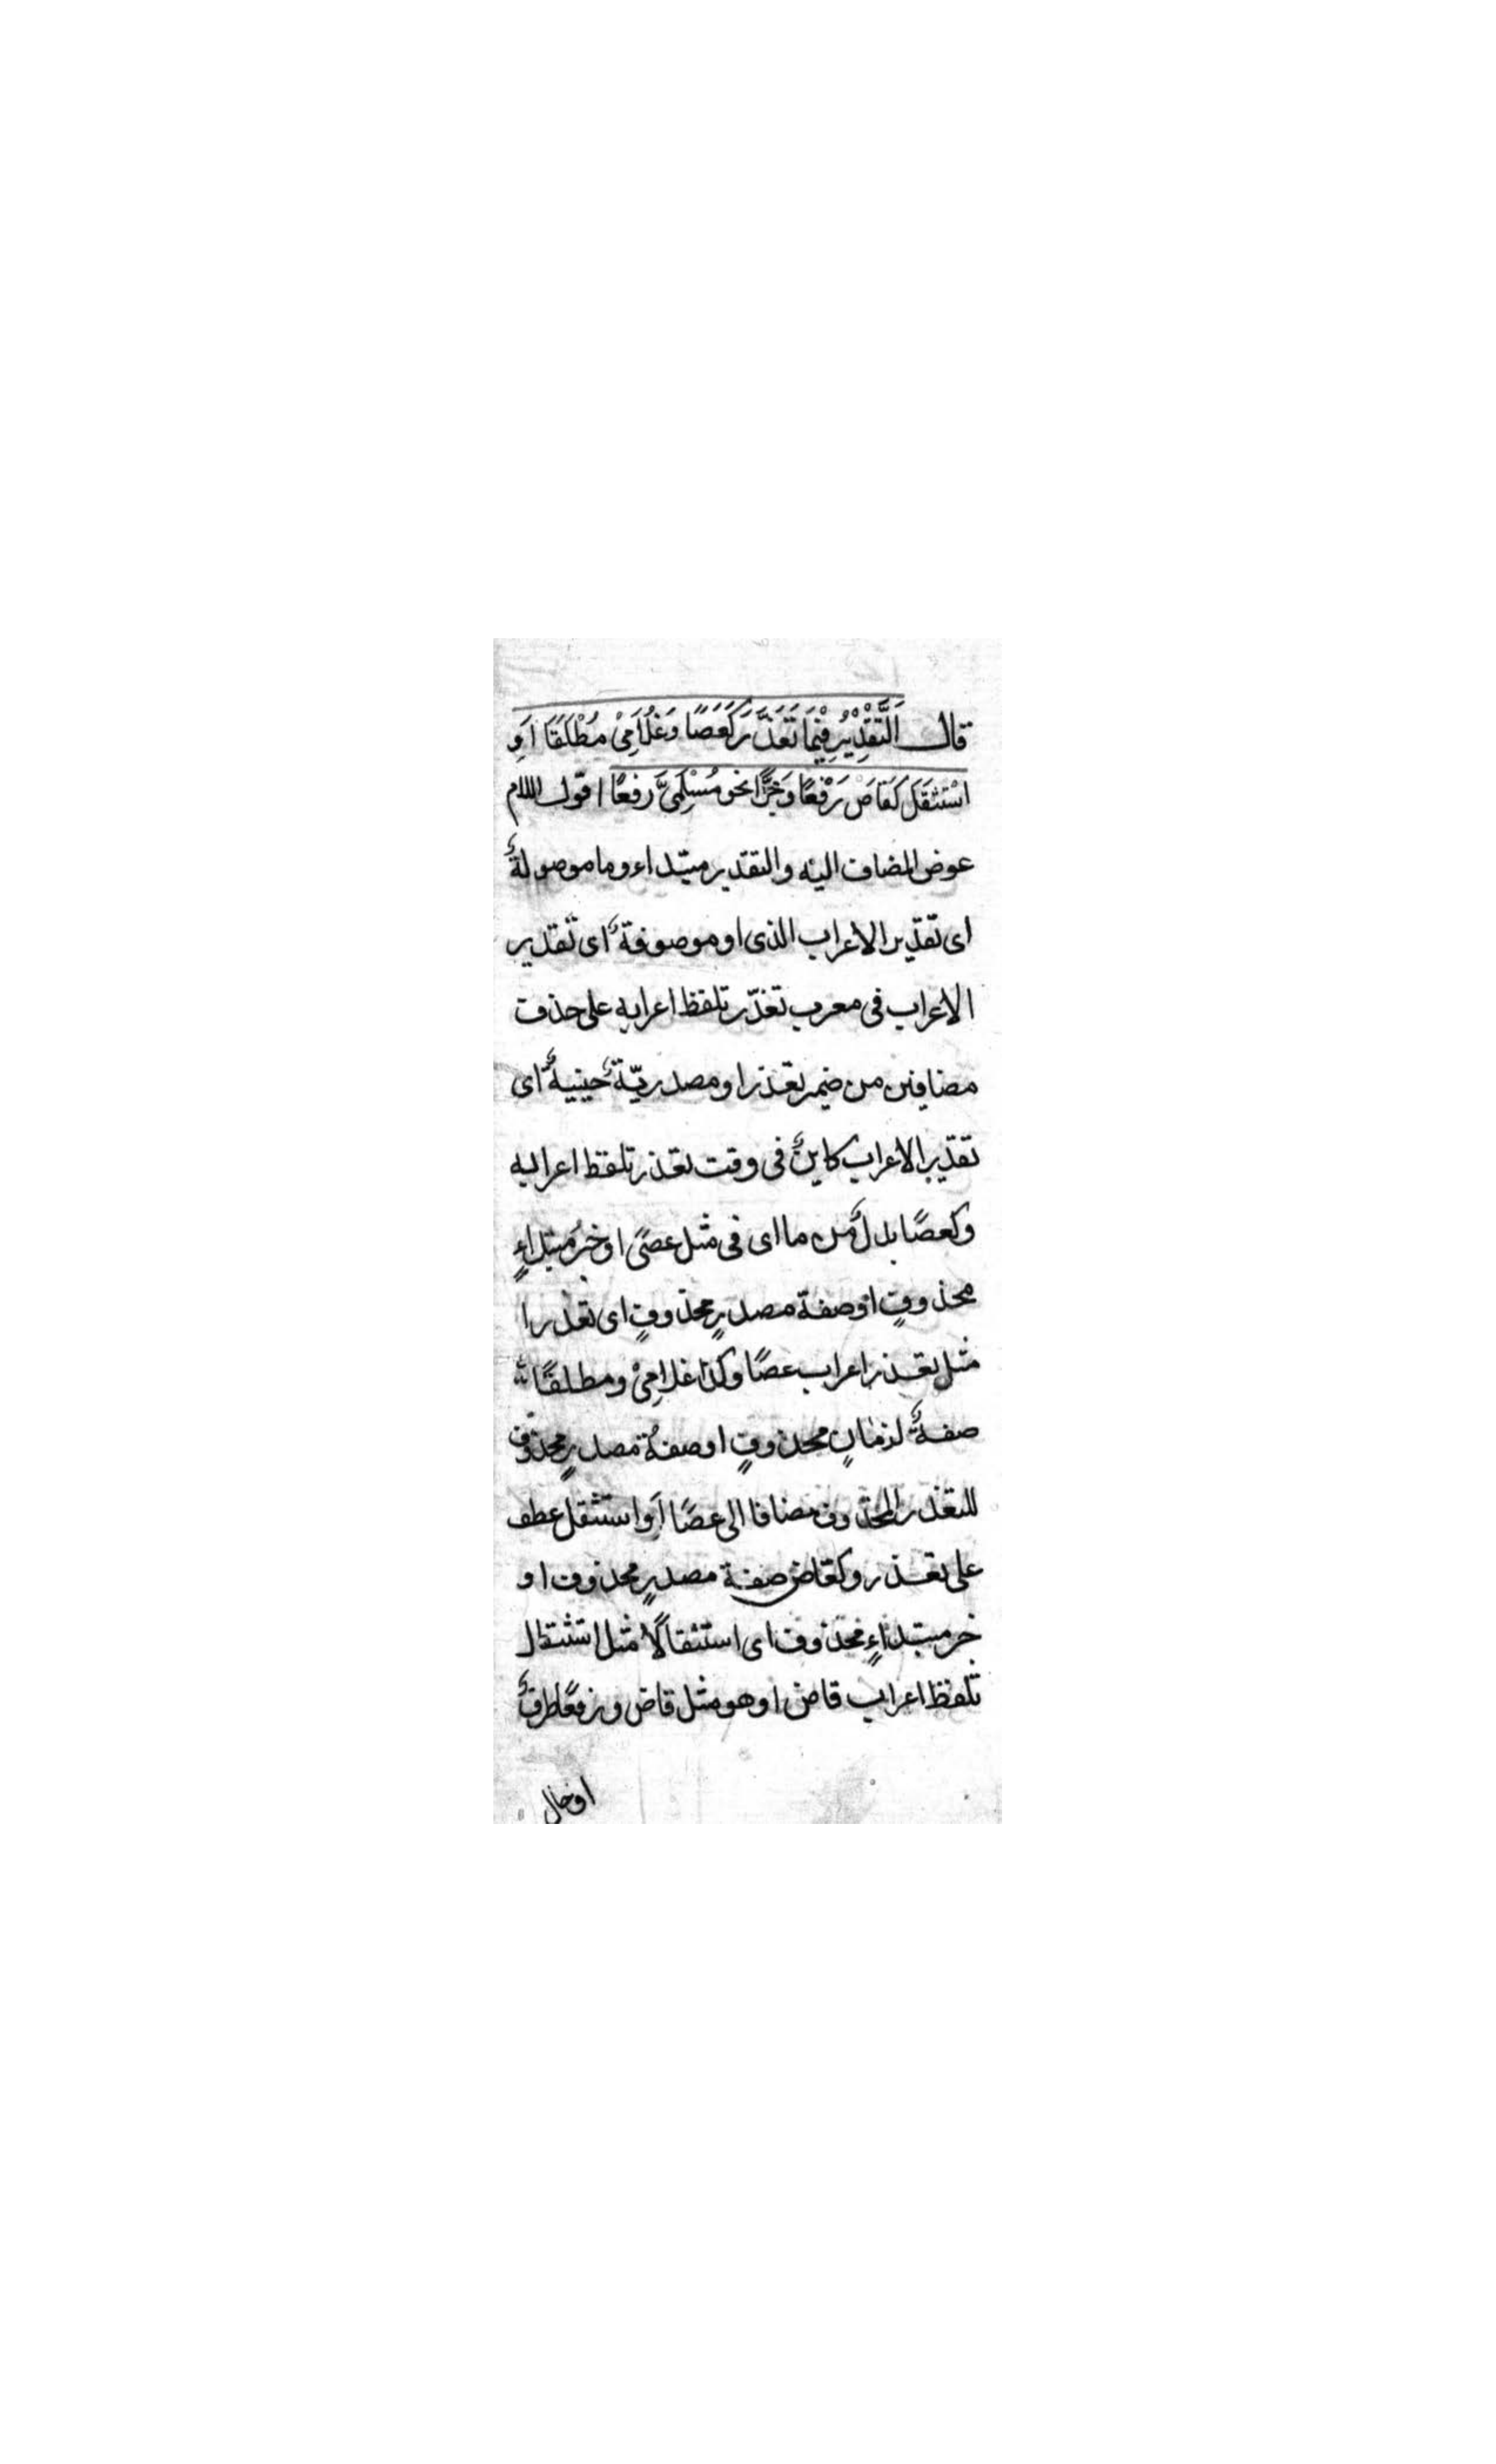 قال اَلتَّقْدِيْرُ فِيْمَا تَعَذَّرَ كَعَصًا وَغُلَامِىْ مُطْلَقًا اَوِ
اسْتُثْقِلَ كَقَاضٍ رَفْعًا وَجَرًّا نحو مُسْلِمِىَّ رَفعًا اقول اللام
عوض المضاف اليه والتقدير مبتداء وما موصولةٌ
اى تقدير الاعراب الذى او موصوفةٌ اى تقدير
الاعراب فى معرب تعذّر تلفظ اعرابه على حذف
مضافين من ضمير تعذر او مصدريّةٌ حينيةٌ اى
تقدير الاعراب كاينٌ فى وقت تعذر تلفظ اعرابه
وكعصًا بدلٌ من ما اى فى مثل عصًى او خبرُ مبتداءٍ
محذوفٍ او صفة مصدرٍ محذوفٍ اى تعذرا
مثل تعذر اعراب عصًا وكذا غلامِىْ ومطلقًا
صفةٌ لزمانٍ محذوفٍ او صفةُ مصدرٍ محذوف
للتعذر المحذوف مضافا الى عصًا اَو استثقل عطف
على تعذر وكقاض صفة مصدرٍ محذوف او
خبر مبتداءٍ محذوف اى استثقالًا مثل استثقال
تلفظ اعراب قاض او هو مثل قاض ورفعًا ظرفٌ
او حال